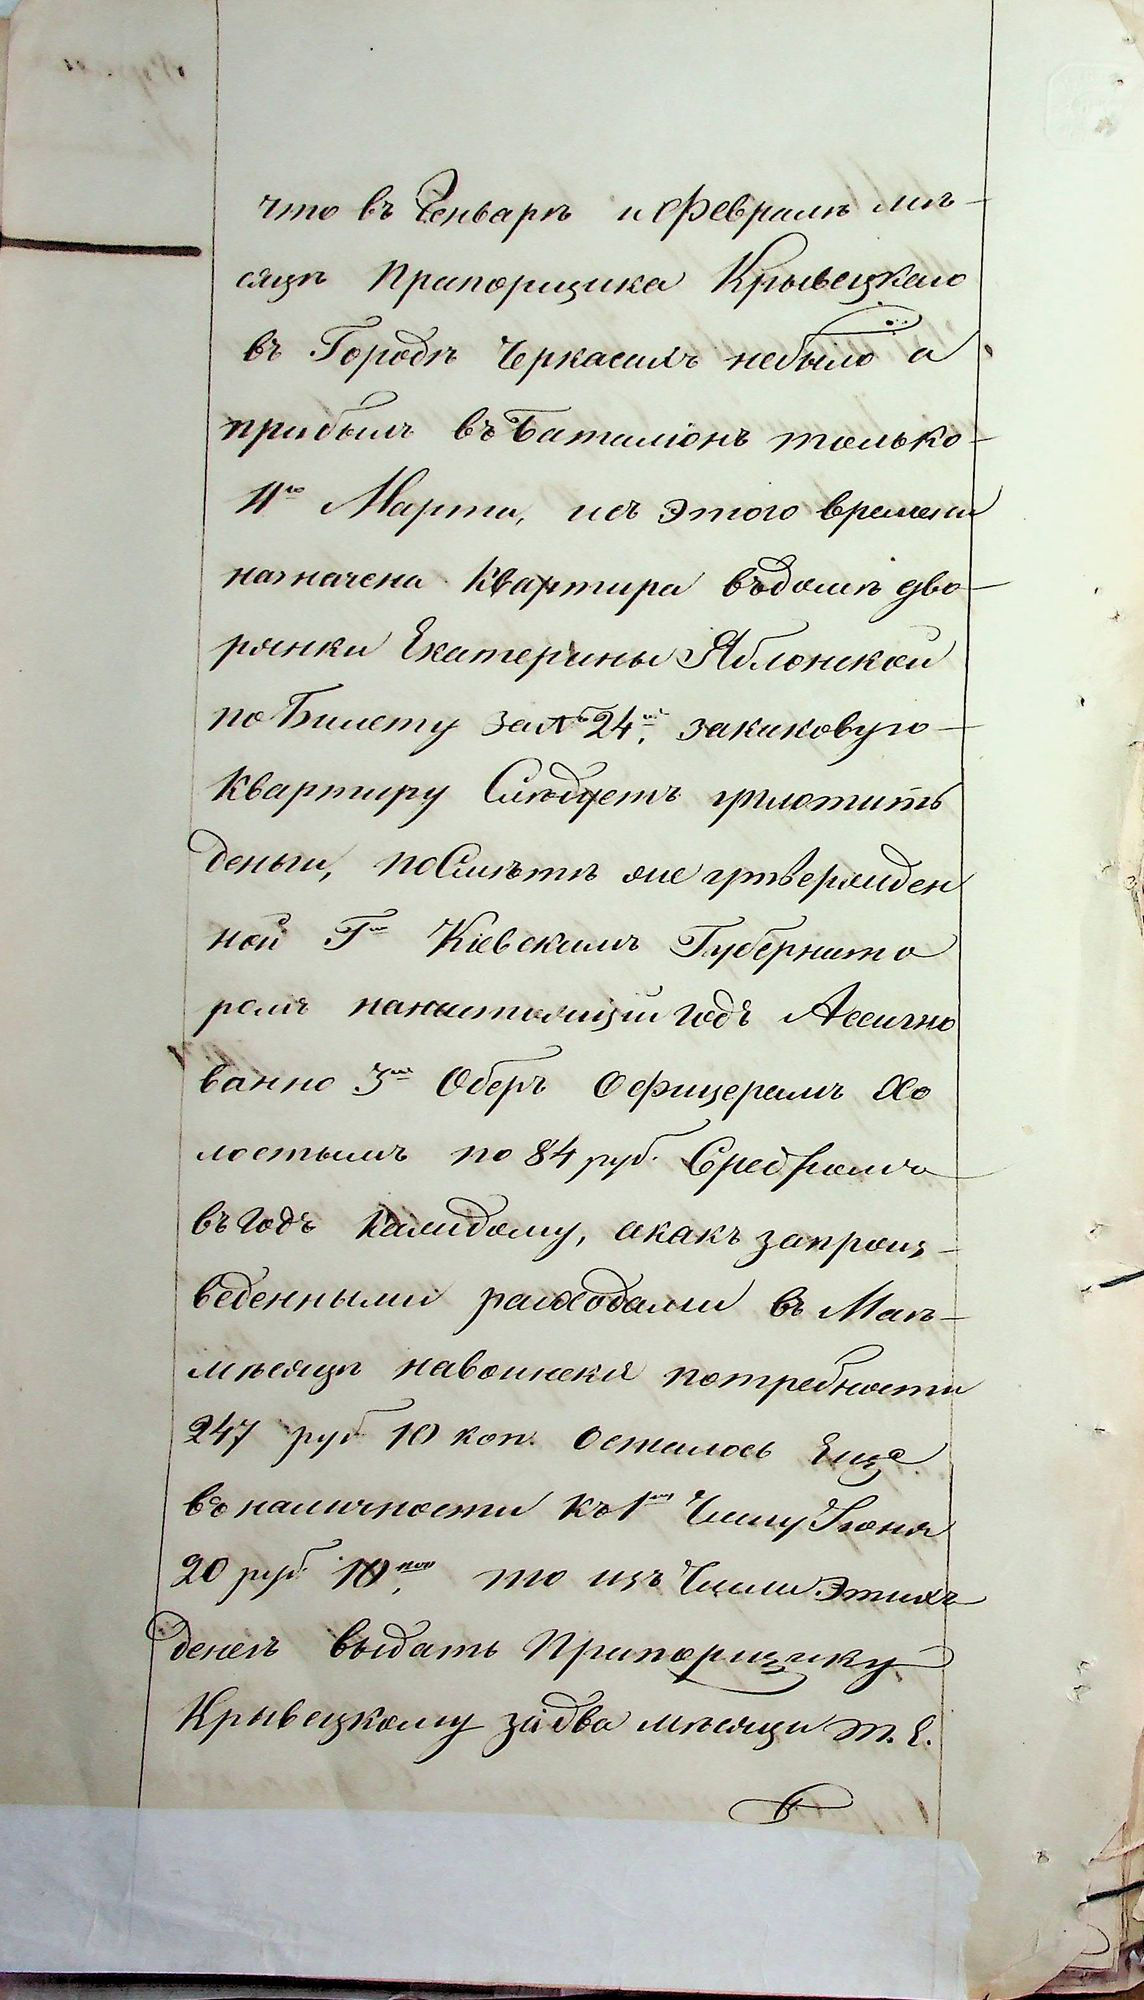 что въ Генваре и Феврале мѣ-
сяцѣ Прапорщика Крывецкаго
въ Городѣ Черкасахъ небыло а
прибылъ въ Баталіонъ только
11го Марта, исъ этого времени
назначена Квартира въ домѣ дво-
рянки Екатерины Яблонской
по Билету за № 24м, закаковую
квартиру Слѣдуетъ уплотить
деньги, по Смѣтѣ же утвержден
ной Гмъ Кіевскимъ Губернато
ромъ на настоящій годъ Ассигно
ванно 3мъ Оберъ Офицерамъ Хо
лостымъ по 84 руб. Сребромъ
въ годъ каждому, а какъ запроиз-
веденными расходами въ Маѣ-
мѣсяцѣ на воинскія потребности
247 руб 10 коп. осталось Еще
въ наличности къ 1му Числу Іюня
20 руб 10 коп, то изъ Числа Этихъ
денегъ выдать Прапорщику
Крывецкому за два мѣсяца т. е.